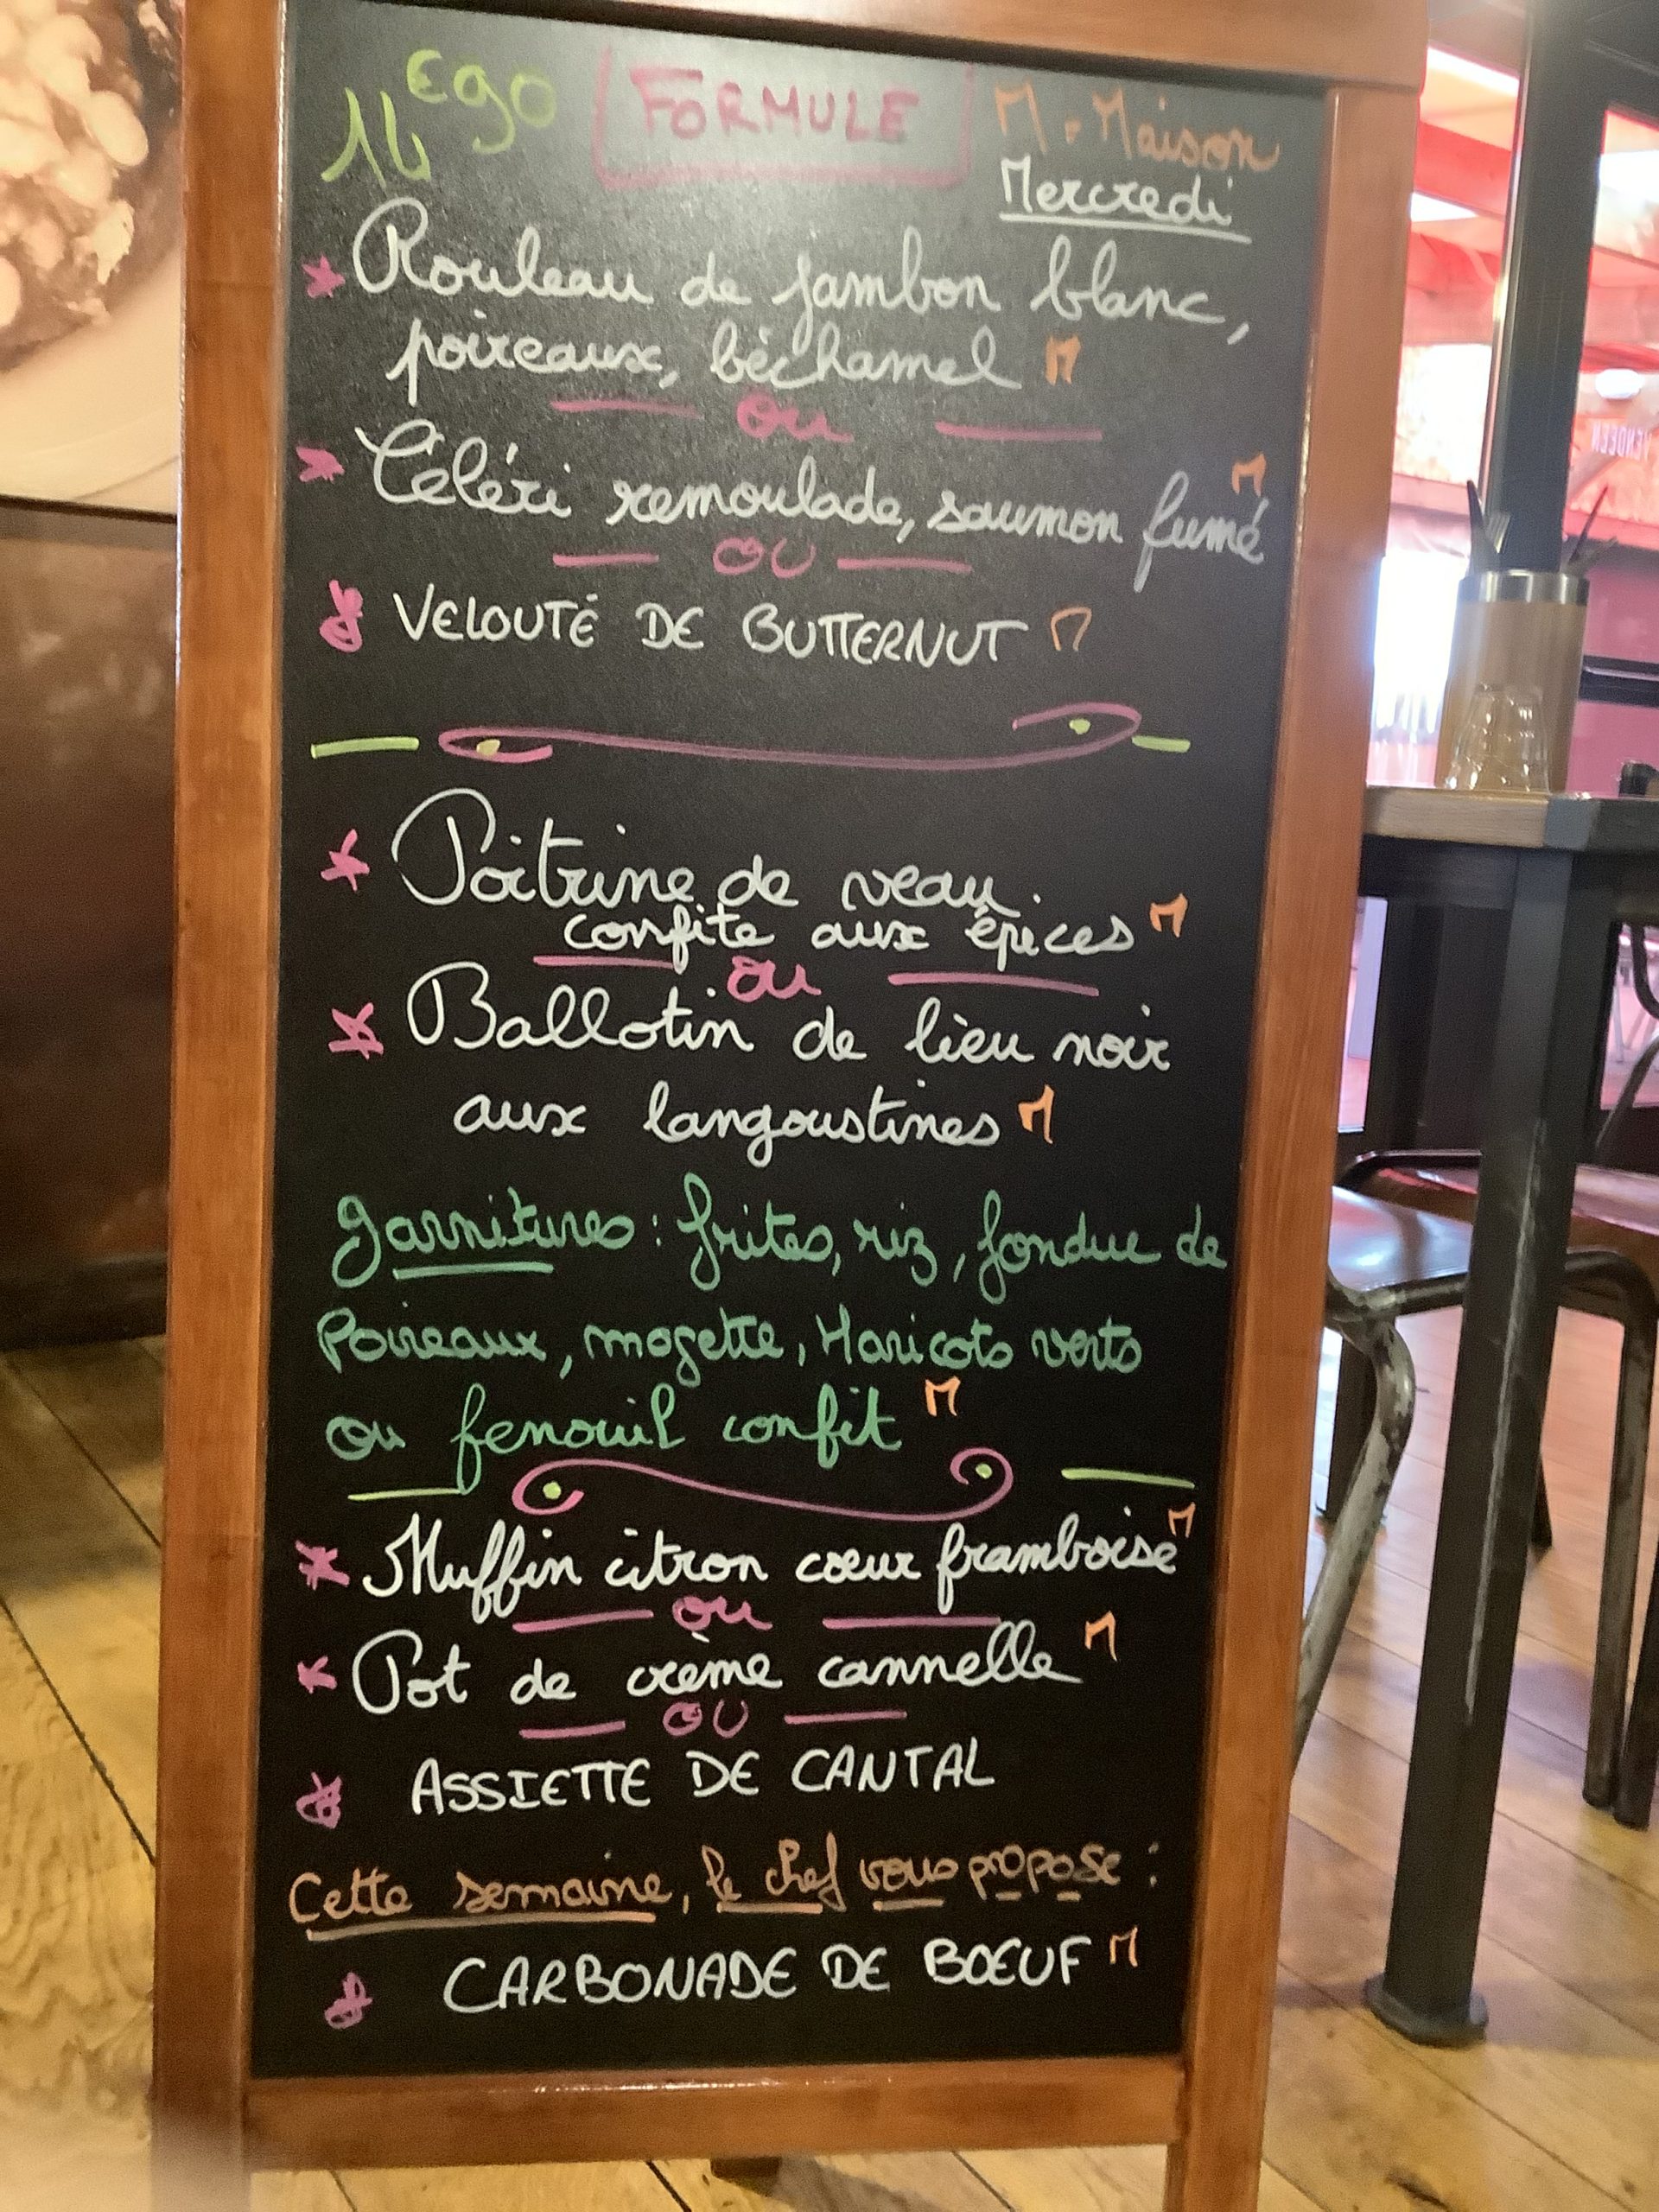 16€90 FORMULE M.Maison
Mercredi
Rouleau de jambon blanc,
poireaux, béchamel M
ou
Céléri remoulade, saumon fumé M
OU
VELOUTÉ DE BUTTERNUT M
Poitrine de veau
confite aux épices M
ou
Ballotin de lieu noir
aux langoustines M
garnitures : frites, riz, fondue de
Poireaux, mogette, Haricots verts
ou fenouil confit M
Muffin citron coeur framboise M
ou
Pot de crème cannelle M
OU
ASSIETTE DE CANTAL
Cette semaine, le chef vous propose :
CARBONADE DE BOEUF M